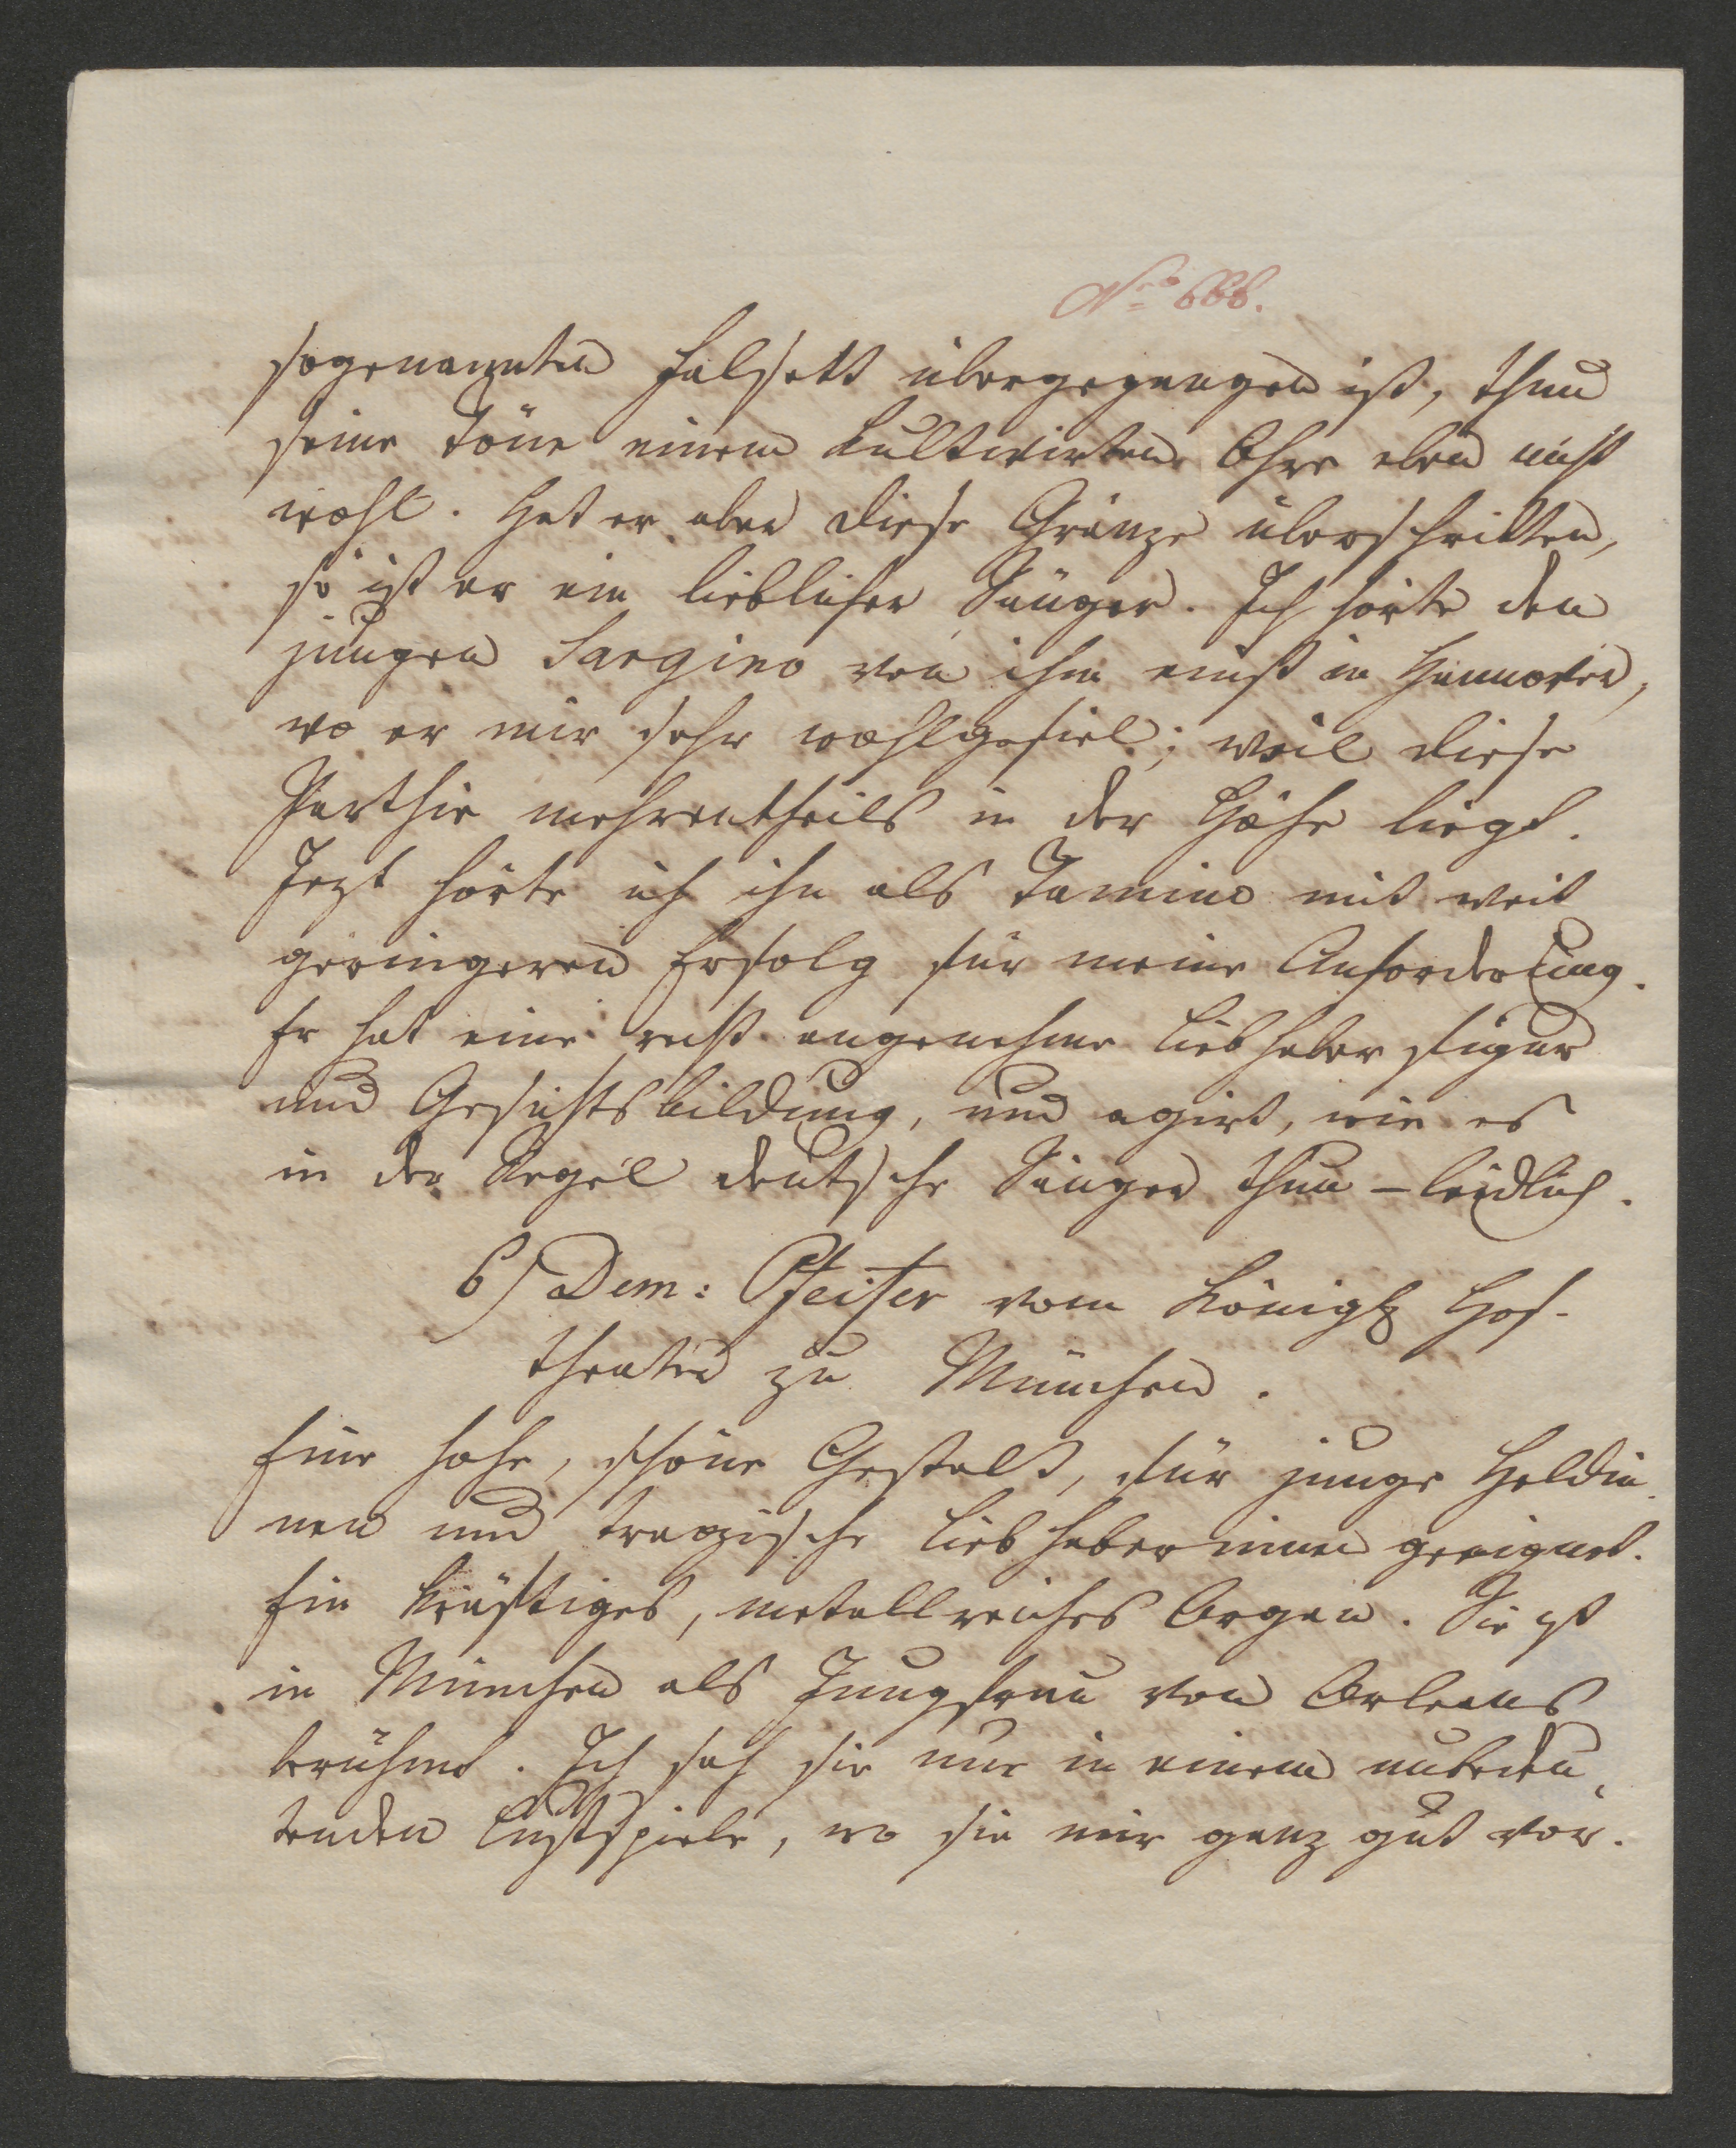 No 666.
sogenannten Falsett übergegangen ist, thun
seine Töne einem kultivirten Ohre eben nicht
wohl. Hat er aber diese Gränze überschritten,
so ist er ein lieblicher Sänger. Ich hörte den
jungen Sargino von ihm einst in Hannover,
wo er mir sehr wohlgefiel; weil diese
Parthie mehrentheils in der Höhe liegt.
Jezt hörte ich ihn als Tamino mit weit
geringeren Erfolg für meine Anforderung.
Er hat eine recht angenehme Liebhaber figur
und Gesichtsbildung, und agirt, wie es
in der Regel deutsche Sänger thun – leidlich.
6) Dem: Pfeifer vom Königl Hof-
theater zu München.
Eine hohe, schöne Gestalt, für junge Heldin
nen und tragische Liebhaberinnen geeignet.
Ein kräftiges, metallreiches Organ. Sie ist
in München als Jungfrau von Orleans
berühmt. Ich sah sie nur in einem unbedeu
tenden Lustspiele, wo sie mir ganz gut vor.